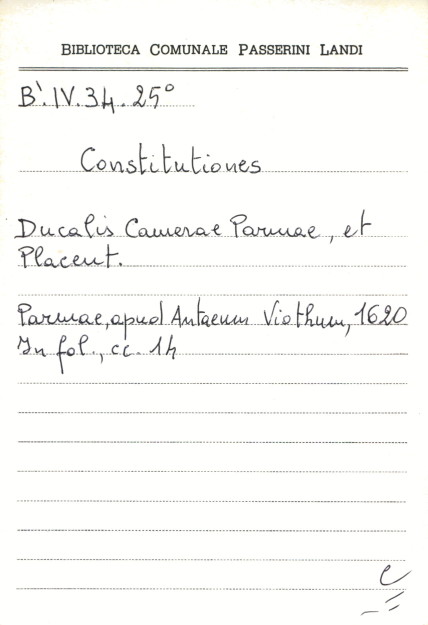 BIBLIOTECA COMUNALE PASSERINI LANDI
B'.IV.34.25°
Constitutiones
Ducalis Camerae Parmae, et
Placent.
Parmae, apud Antaeum Viothum, 1620
In fol., cc. 14